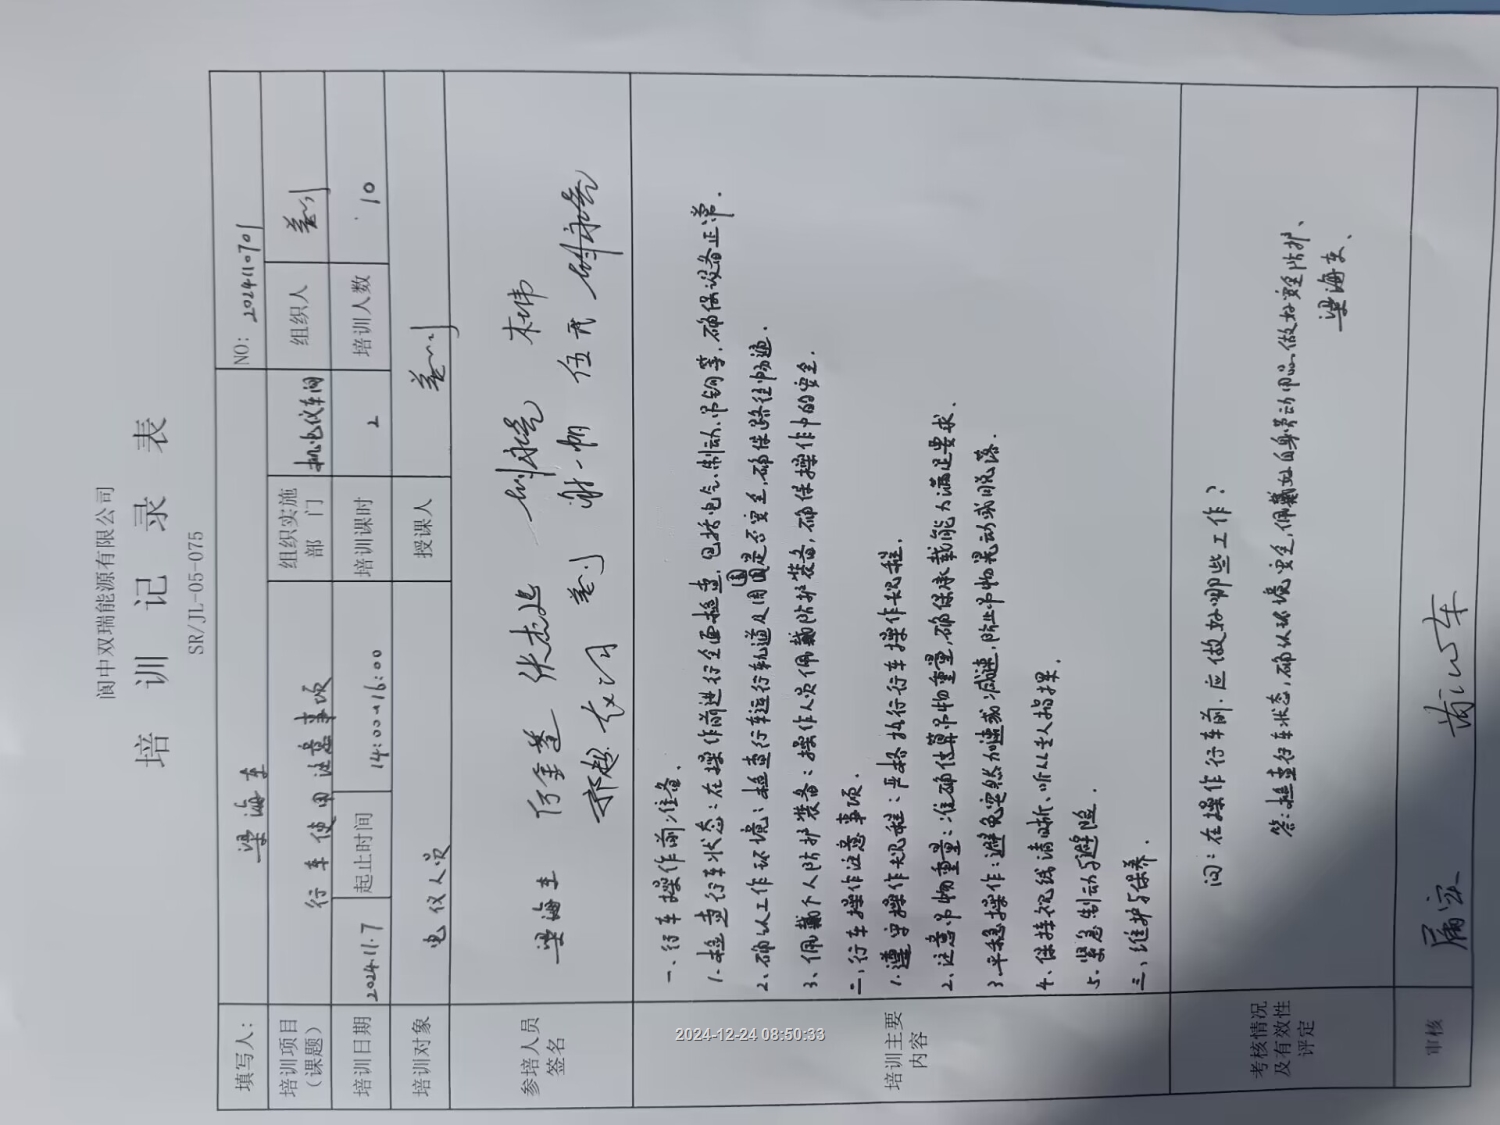 阆中双瑞能源有限公司
培 训 记 录 表
SR/JL-05-075
填写人： 梁海东 NO: 2024110701
培训项目（课题） 行车使用注意事项 组织实施部门 机电仪车间 组织人
培训日期 2024.11.7 起止时间 14:00~16:00 培训课时 2 培训人数 10
培训对象 电仪人员 授课人
参培人员签名 梁海东 张志 林伟
郑超 谢一帆 伍
培训主要内容
一、行车操作前准备.
1.检查行车状态:在操作前进行全面检查,包括电气、制动、吊钩等,确保设备正常.
2、确认工作环境:检查行车运行轨道及周围是否安全,确保路径畅通.
3、佩戴个人防护装备:操作人员佩戴防护装备,确保操作中的安全.
二,行车操作注意事项.
1.遵守操作规程:严格执行行车操作规程.
2、注意吊物重量:准确估算吊物重量,确保承载能力满足要求.
3.平稳操作:避免突然加速或减速,防止吊物晃动或脱落.
4、保持视线清晰、听从专人指挥.
5、紧急制动与避险.
三、维护与保养.
考核情况及有效性评定
问:在操作行车前.应做好哪些工作?
答:检查行车状态,确认环境安全,佩戴好自身劳动用品.做好安全防护、
梁海东、
审核
2024-12-24 08:50:33